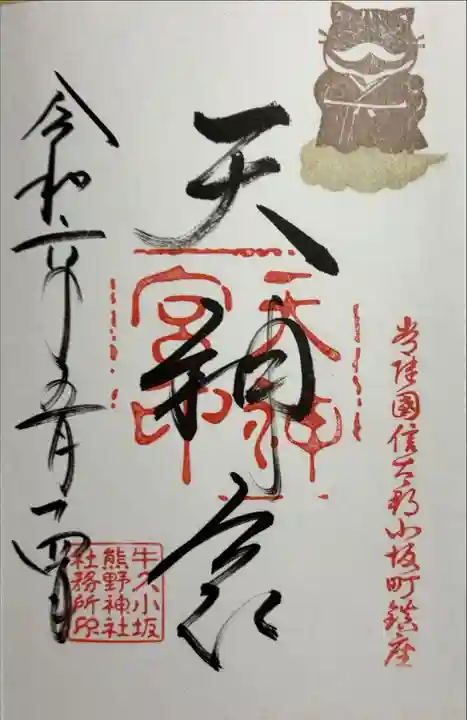 常陸國信太郡小坂町鎮座
天神宮
天神宮印
令和六年五月二四日
牛久小坂
熊野神社
社務所印